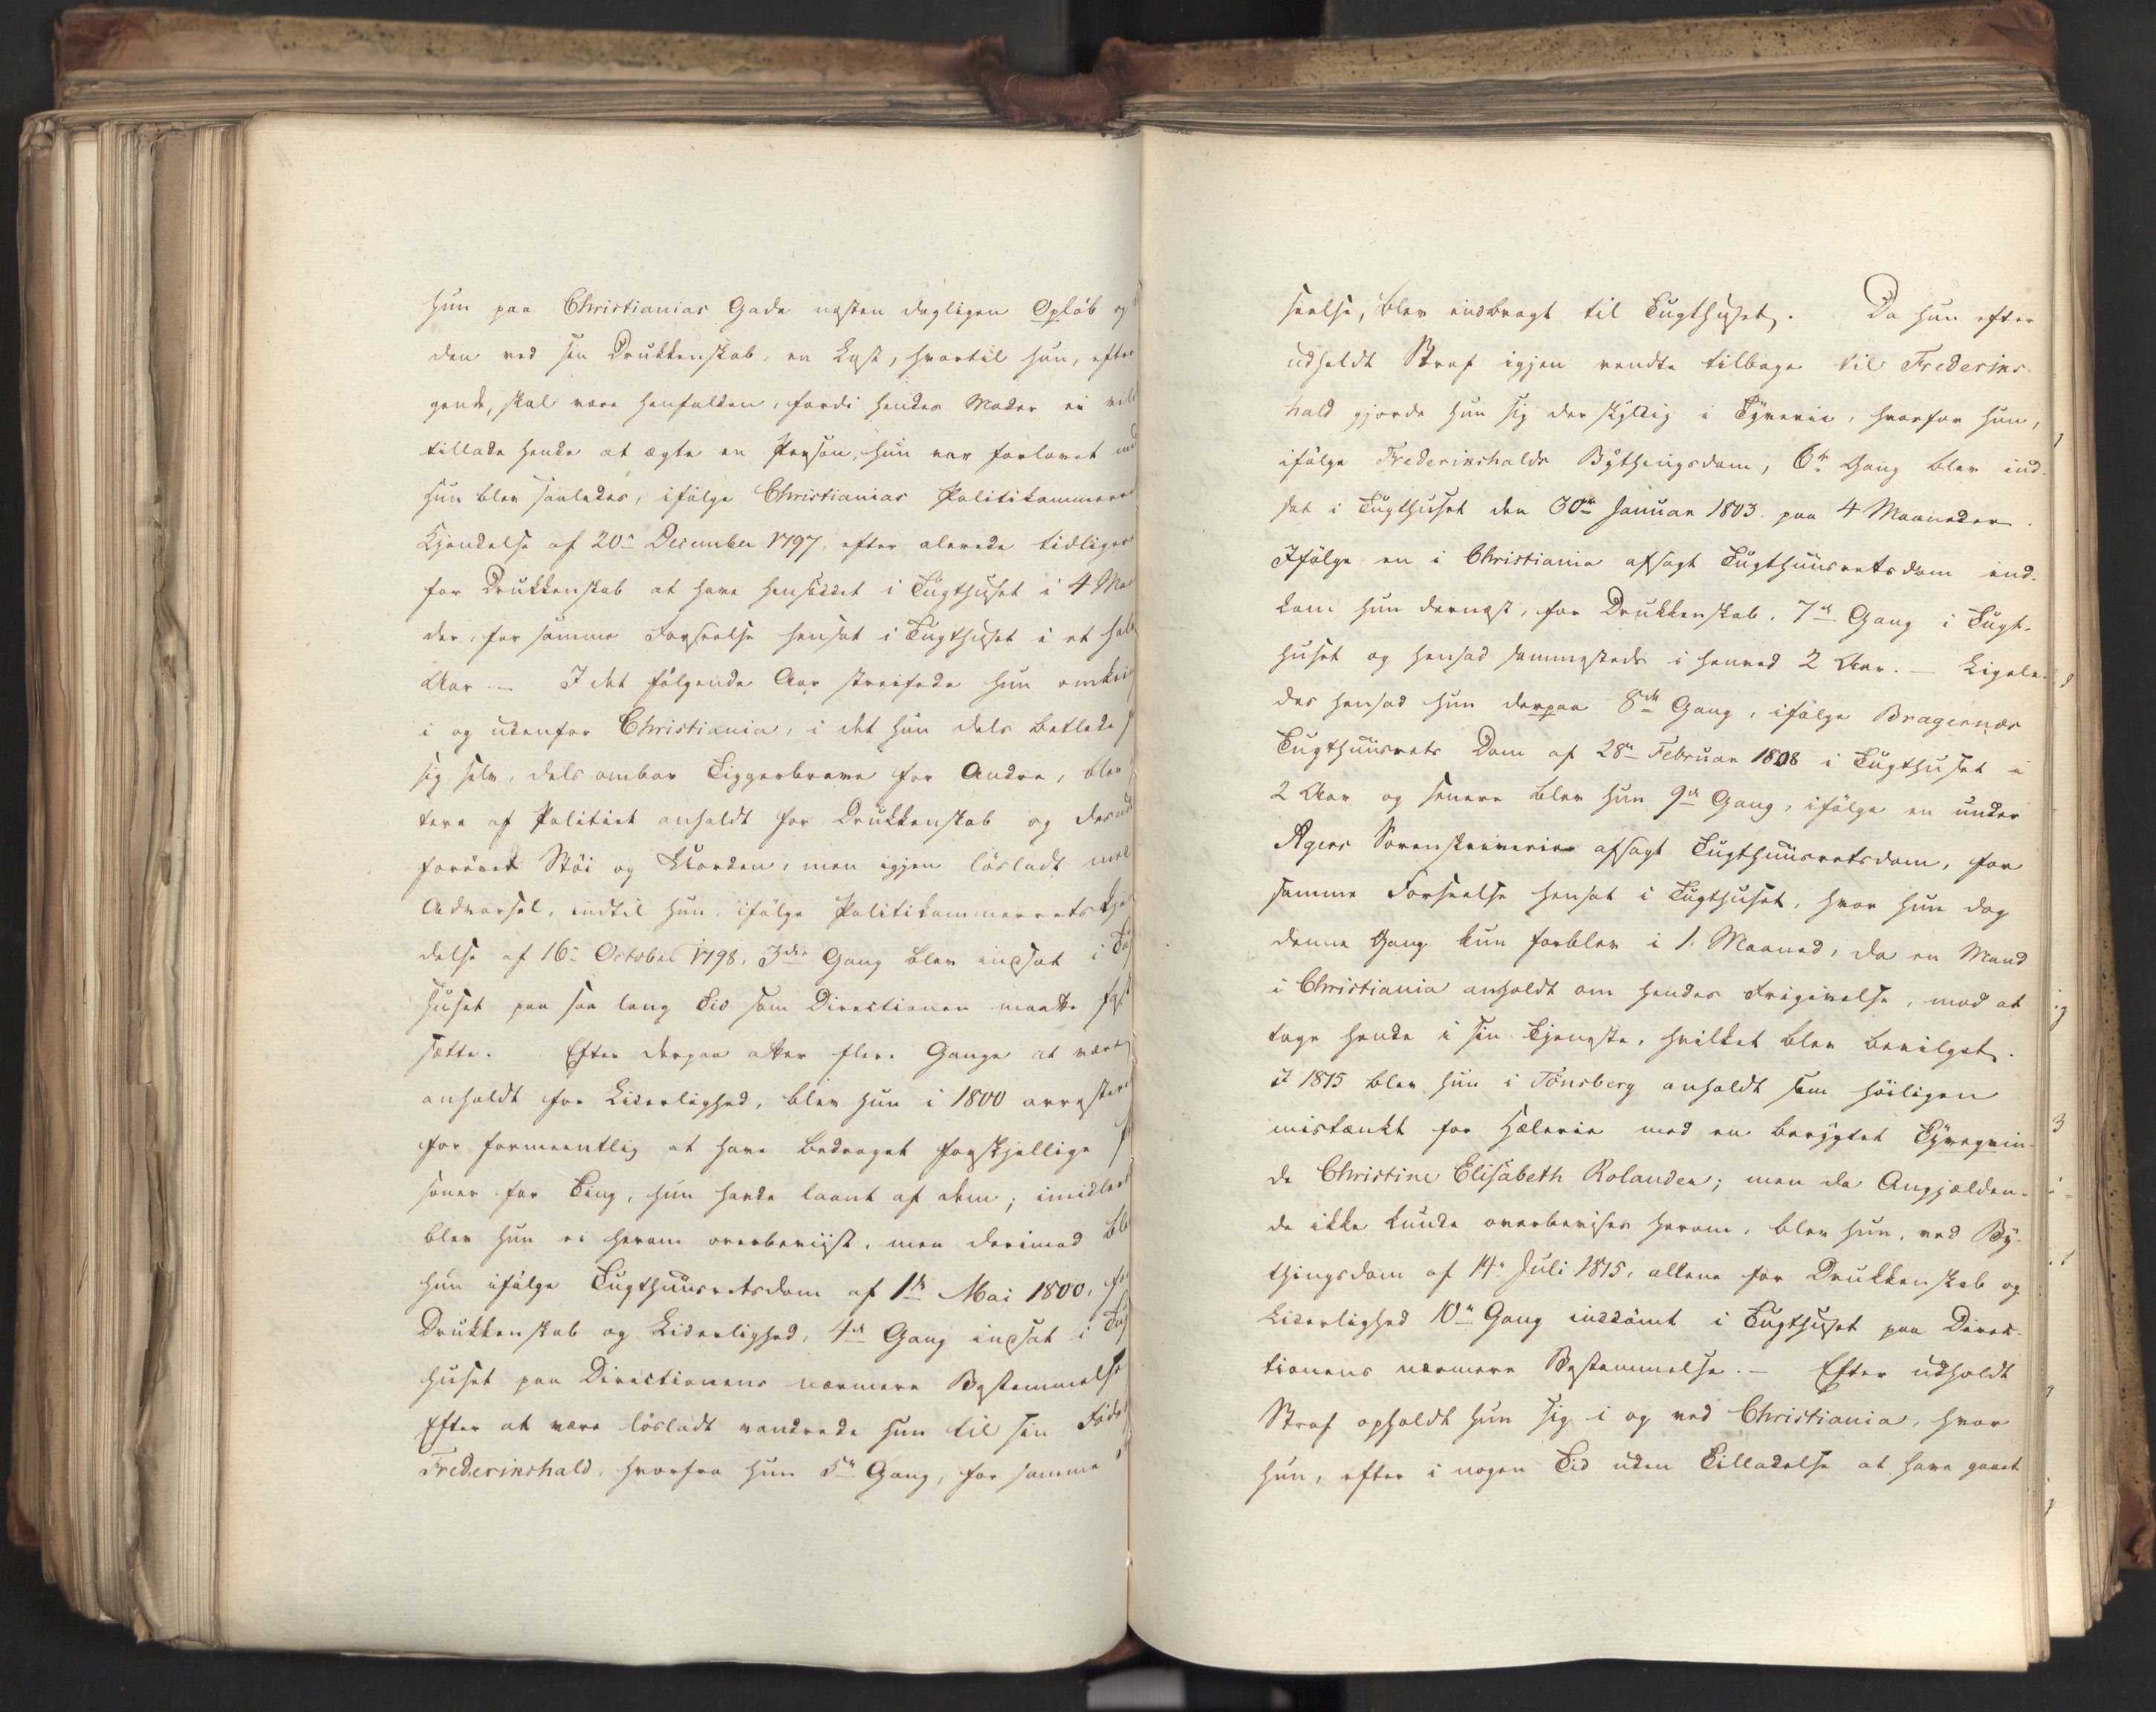 hun paa Christianias Gade næsten dagligen Opløb og
den ved sin Drukkenskab, en Last, hvortil hun, efter
gende, skal være henfalden, fordi hendes Moder ei vild
tillade hende at ægte en Person, hun var forlovet med
Hun blev saaledes, ifølge Christianias Politikammer
Kjendelse af 20de December 1797, efter alerede tidligere
for Drukkenskab at have hensiddet i Tugthuset i 4 Maa
der, for samme Forseelse hensat i Tugthuset i et halv
Aar. – I det følgende Aar streifede hun omkring
i og udenfor Christiania, i det hun dels betlede
sig selv, dels ombar Tiggerbreve for Andre, blev
tere af Politiet anholdt for Drukkenskab og desud
forøvet Støi og Uorden, men igjen løsladt med
Advarsel, indtil hun, ifølge Politikammerrets Kje
delse af 16de October 1798, 3die Gang blev indsat i Tug
huset paa saa lang Tid som Directionen maatte fast
sætte. Efter derpaa atter flere Gange at være
anholdt for Liderlighed, blev hun i 1800 arrestere
for formeentlig at have bedraget forskjellige
soner for Ting, hun havde laant af dem; imidlert
blev hun ei herom overbeviist, men derimod blev
hun ifølge Tugthuusretsdom af 1ste Mai 1800, for
Drukkenskab og Liderlighed, 4de Gang indsat i Tug
huset paa Directionens nærmere Bestemmelse
Efter at være løsladt vandrede hun til sin Føde
Frederikshald, hvorfra hun 5te Gang, for samme
seelse, blev indbragt til Tugthuset. Da hun efter
udholdt Straf igjen vendte tilbage til Frederiks-
hald gjorde hun sig der skyldig i Tyverie, hvorfor hun,
ifølge Frederikshalds Bythingsdom, 6te Gang blev ind-
sat i Tugthuset den 30te Januar 1803 paa 4 Maaneder.
Ifølge en i Christiania afsagt Tugthuusretsdom ind-
kom hun dernæst, for Drukkenskab, 7de Gang i Tugt-
huset og hensad sammesteds i henved 2 Aar. – Ligele-
des hensad hun derpaa 8de Gang, ifølge Bragernæs
Tugthuusrets Dom af 28de Februar 1808 i Tugthuset i
2 Aar og senere blev hun 9de Gang, ifølge en under
Agers Sorenskriverie afsagt Tugthuusretsdom, for
samme Forseelse hensat i Tugthuset, hvor hun dog
denne Gang kun forblev i 1 Maaned, da en Mand
i Christiania anholdt om hendes Frigivelse, mod at
tage hende i sin Tjeneste, hvilket blev bevilget.
I 1815 blev hun i Tønsberg anholdt som høiligen
mistænkt for Hælerie med en berygtet Tyveqvin-
de Christine Elisabeth Rolandea; men da Angjælden-
de ikke kunde overbevises herom, blev hun, ved By-
thingsdom af 14de Juli 1815, allene for Drukkenskab og
Liderlighed 10de Gang inddømt i Tugthuset paa Direc-
tionens nærmere Bestemmelse. – Efter udholdt
Straf opholdt hun sig i og ved Christiania, hvor
hun, efter i nogen Tid uden Tilladelse at have gaaet